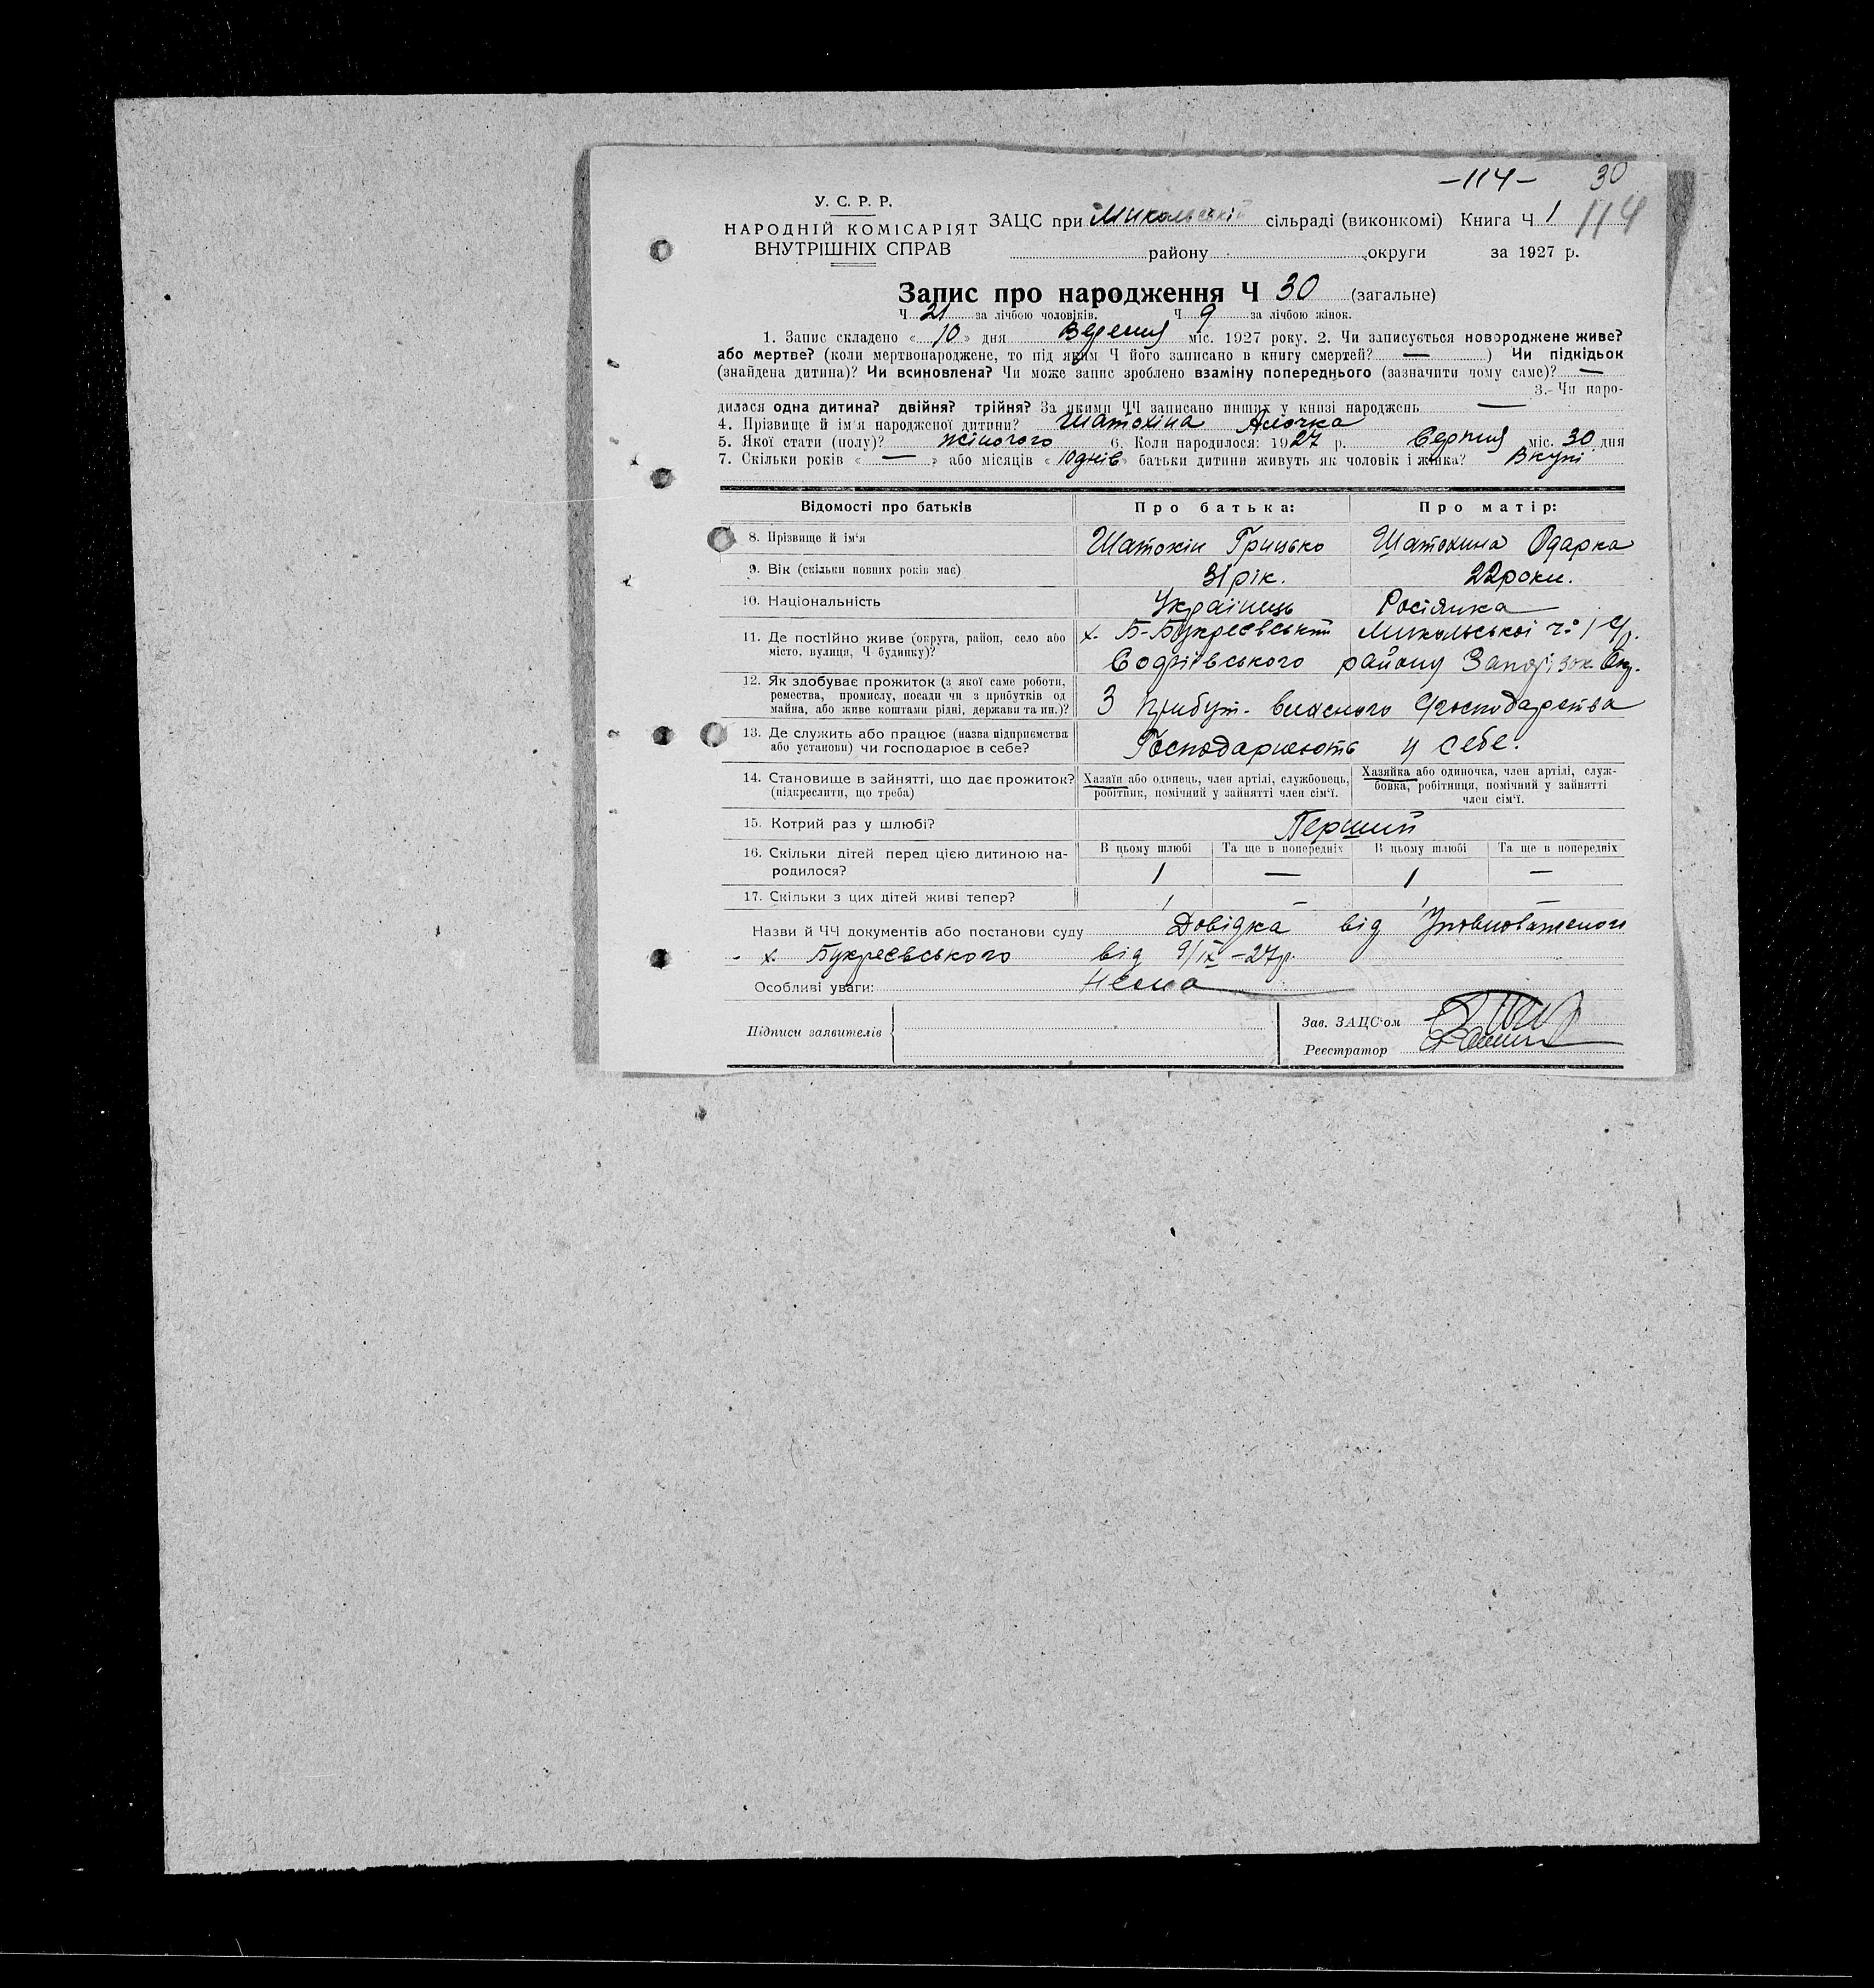 -114- 30
У. С. Р. Р.
НАРОДНІЙ КОМІСАРІЯТ
ВНУТРІШНІХ СПРАВ
ЗАЦС при Микольській сільраді (виконкомі) Книга Ч 1 114
району округи за 1927 р.
Запис про народження Ч 30 (загальне)
Ч 21 за лічбою чоловіків. Ч 9 за лічбою жінок.
1. Запис складено « 10 » дня Вересня міс. 1927 року. 2. Чи записується новороджене живе?
або мертве? (коли мертвонароджене, то під яким Ч його записано в книгу смертей? — ) Чи підкідьок
(знайдена дитина)? Чи всиновлена? Чи може запис зроблено взаміну попереднього (зазначити чому саме)? —
3. Чи наро-
дилася одна дитина? двійня? трійня? За якими ЧЧ записано инших у книзі народжень —
4. Прізвище й ім'я народженої дитини? Шатохіна
5. Якої стати (полу)? жіночого 6. Коли народилося: 1927 р. Серпня міс. 30 дня
7. Скільки років « — » або місяців « 10 днів » батьки дитини живуть як чоловік і жінка? Вкупі
Відомості про батьків Про батька: Про матір:
8. Прізвище й ім'я Шатохін Грицько Шатохина Одарка
9. Вік (скільки повних років має) 31 рік. 22 роки.
10. Національність Українець Росіянка
11. Де постійно живе (округа, район, село або
місто, вулиця, Ч будинку)?
х. Б-Букреєвський Микольської ч. 1 С/р.
району Запорізьк. Окр.
12. Як здобуває прожиток (з якої саме роботи,
ремества, промислу, посади чи з прибутків од
майна, або живе коштами рідні, держави та ин.)?
З прибут. власного господарства
13. Де служить або працює (назва підприємства
або установи) чи господарює в себе?
Господарюють у себе.
14. Становище в зайнятті, що дає прожиток?
(підкреслити, що треба)
Хазяїн або одинець, член артілі, службовець,
робітник, помічний у зайнятті член сім'ї.
Хазяйка або одиночка, член артілі, служ-
бовка, робітниця, помічний у зайнятті
член сім'ї.
15. Котрий раз у шлюбі? Перший
16. Скільки дітей перед цією дитиною на-
родилося?
В цьому шлюбі Та ще в попередніх В цьому шлюбі Та ще в попередніх
1 — 1 —
17. Скільки з цих дітей живі тепер? 1 — 1 —
Назви й ЧЧ документів або постанови суду Довідка від Уповноваженого
х. Букреєвського від 9/IX-27р.
Особливі уваги: Нема
Підписи заявителів
Зав. ЗАЦС'ом
Реєстратор